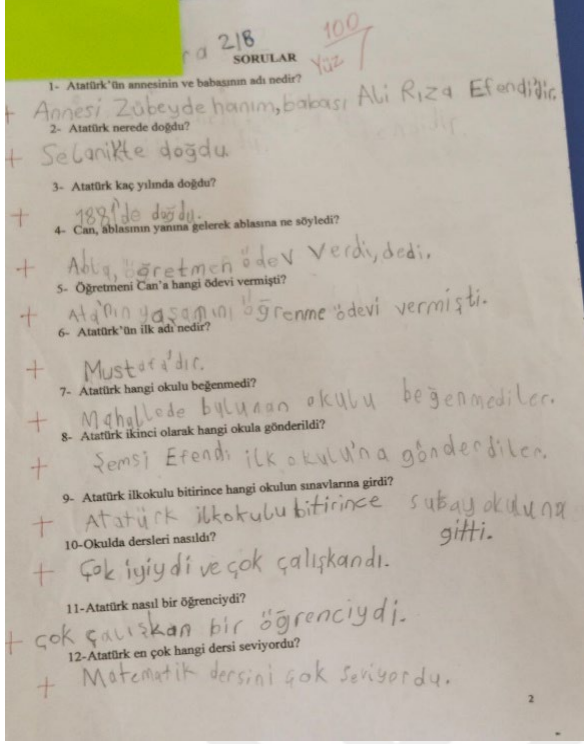 ra 2/B
100
Yüz
SORULAR
1- Atatürk'ün annesinin ve babasının adı nedir?
+ Annesi Zübeyde hanım, babası Ali Rıza Efendi'dir.
2- Atatürk nerede doğdu?
+ Selanikte doğdu.
3- Atatürk kaç yılında doğdu?
+ 1881'de doğdu.
4- Can, ablasının yanına gelerek ablasına ne söyledi?
+ Abla, öğretmen ödev verdi, dedi.
5- Öğretmeni Can'a hangi ödevi vermişti?
+ Ata'nın yaşamını öğrenme ödevi vermişti.
6- Atatürk'ün ilk adı nedir?
+ Mustafa'dır.
7- Atatürk hangi okulu beğenmedi?
+ Mahallede bulunan okulu beğenmediler.
8- Atatürk ikinci olarak hangi okula gönderildi?
+ Şemsi Efendi ilk okulu'na gönderdiler.
9- Atatürk ilkokulu bitirince hangi okulun sınavlarına girdi?
+ Atatürk ilkokulu bitirince subay okuluna
gitti.
10-Okulda dersleri nasıldı?
+ Çok iyiydi ve çok çalışkandı.
11-Atatürk nasıl bir öğrenciydi?
+ çok çalışkan bir öğrenciydi.
12-Atatürk en çok hangi dersi seviyordu?
+ Matematik dersini çok seviyordu.
2